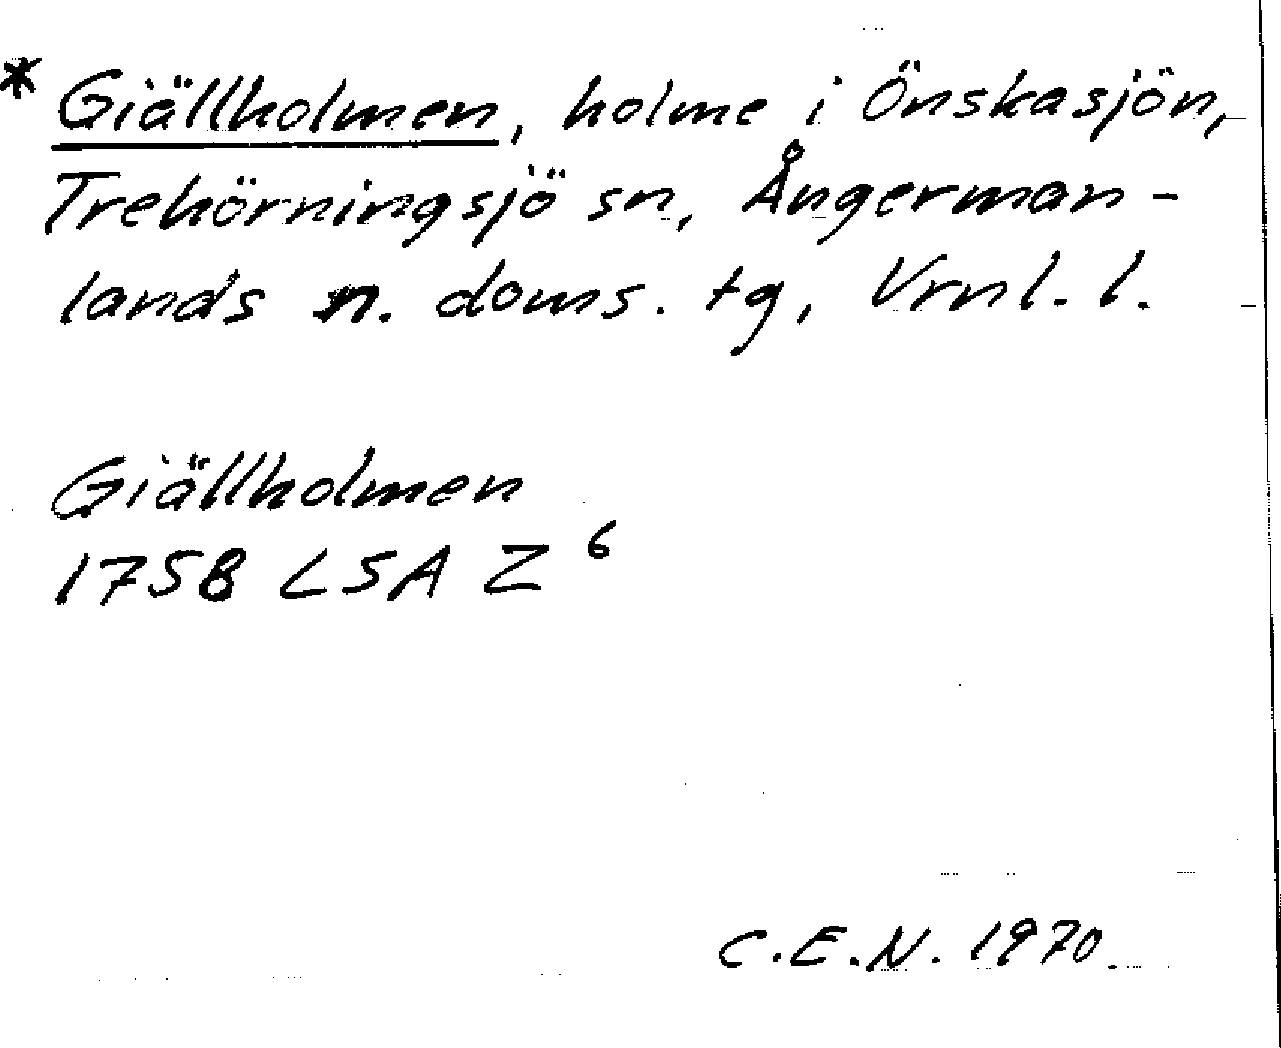 * Giällholmen, holme i Önskasjön,
Trehörningsjö sn, Ångerman-
lands n. doms. tg, Vrnl. l.
Giällholmen
1758 LSA Z 6
C.E.N. 1970.